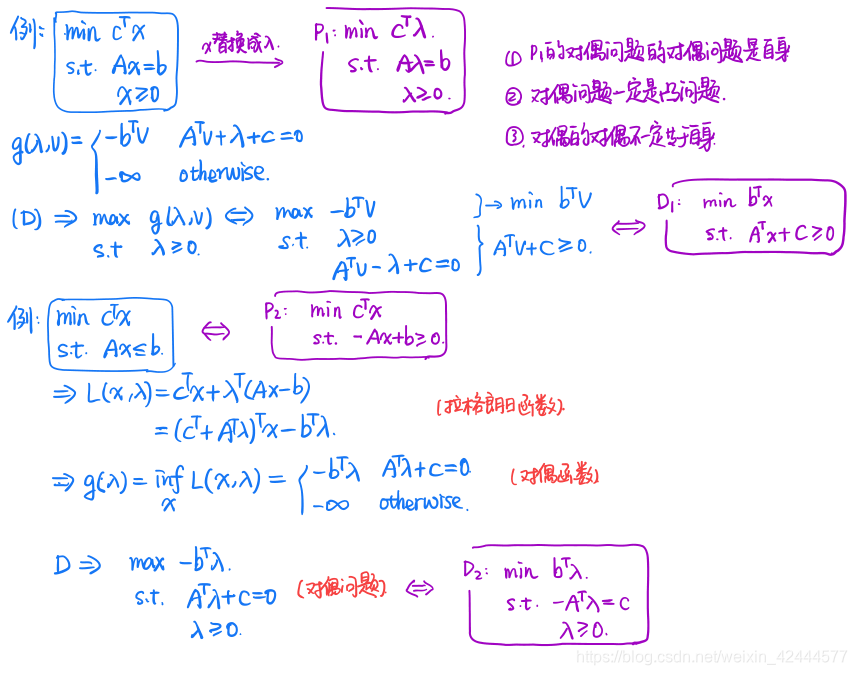 例: min cᵀx
s.t. Ax=b
x≥0
x替换成λ.
P₁: min cᵀλ.
s.t. Aλ=b
λ≥0.
① P₁的对偶问题的对偶问题是自身
② 对偶问题一定是凸问题.
③. 对偶的对偶不一定等于自身.
g(λ,υ)= { -bᵀυ Aᵀυ+λ+c=0
-∞ otherwise.
(D) ⇒ max g(λ,υ) ⇔ max -bᵀυ
s.t λ≥0. s.t. λ≥0
Aᵀυ-λ+c=0
} → min bᵀυ
} Aᵀυ+c≥0.
⇔ D₁: min bᵀx
s.t. Aᵀx+c≥0
例: min cᵀx
s.t. Ax≤b.
⇔ P₂: min cᵀx
s.t. -Ax+b≥0.
⇒ L(x,λ)=cᵀx+λᵀ(Ax-b)
(拉格朗日函数).
=(cᵀ+Aᵀλ)ᵀx-bᵀλ.
⇒ g(λ)= inf L(x,λ) = { -bᵀλ Aᵀλ+c=0.
x
-∞ otherwise.
(对偶函数)
D ⇒ max -bᵀλ.
s.t. Aᵀλ+c=0
λ≥0.
(对偶问题). ⇔
D₂: min bᵀλ.
s.t. -Aᵀλ=c
λ≥0.
https://blog.csdn.net/weixin_42444577